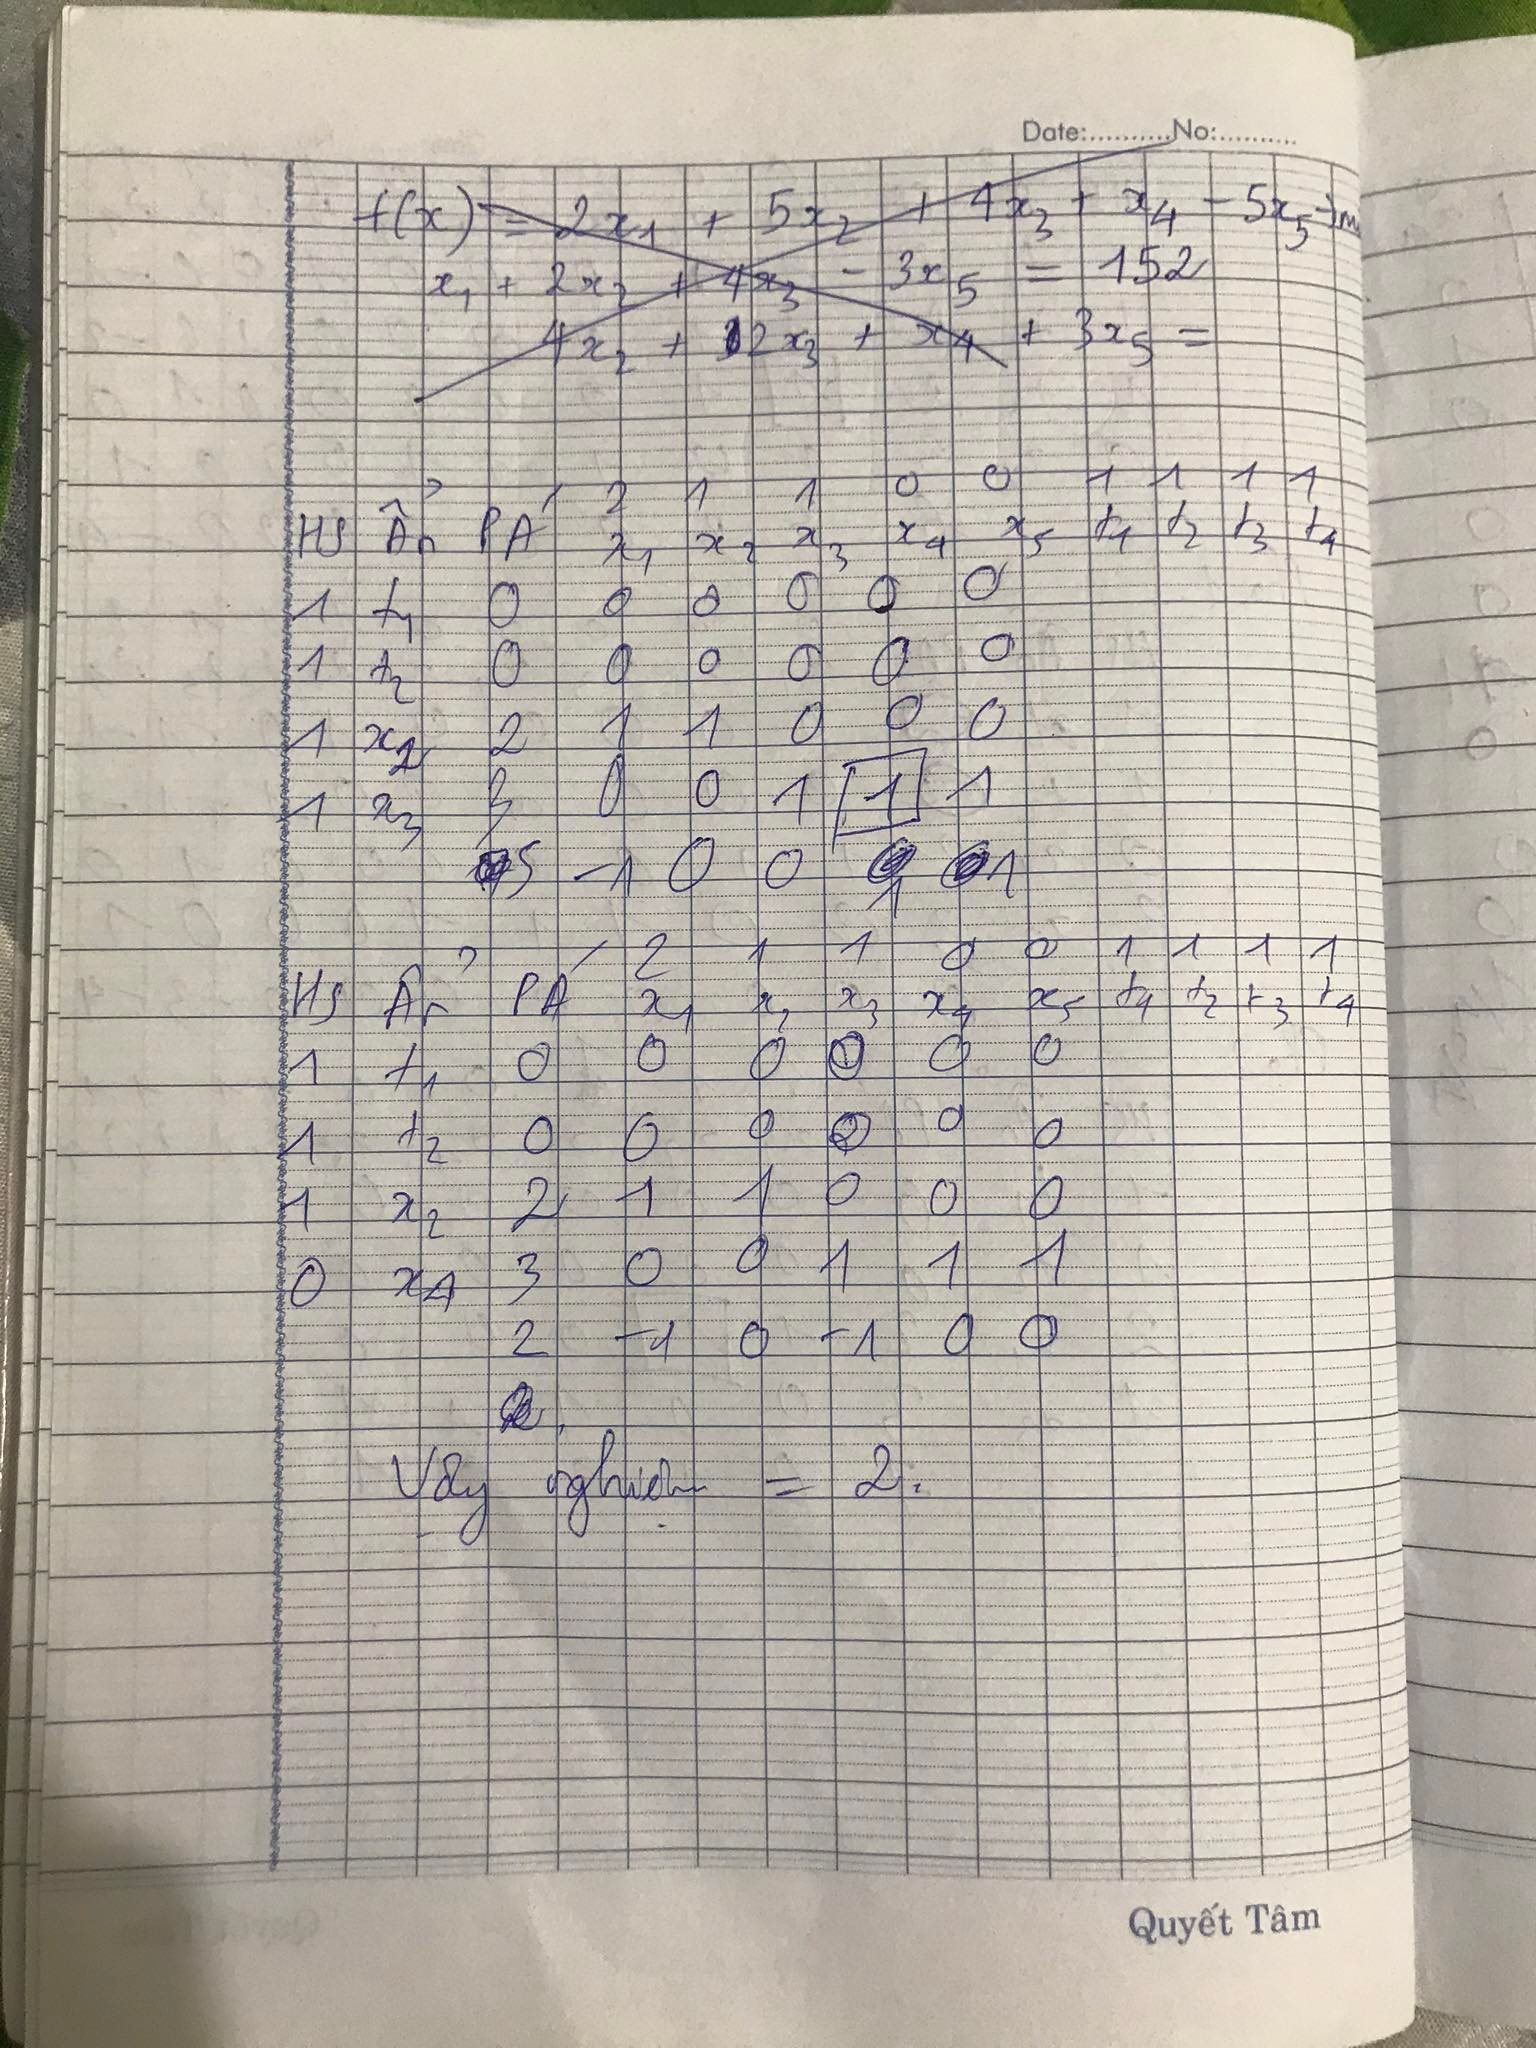 Date:..........No:..........
f(x) = 2x₁ + 5x₂ + 4x₃ + x₄ - 5x₅ →
x₁ + 2x₂ + 4x₃ - 3x₅ = 152
4x₂ + 2x₃ + x₄ + 3x₅ =
2 1 1 0 0 1 1 1 1
HS Ẩn PÁ x₁ x₂ x₃ x₄ x₅ t₁ t₂ t₃ t₄
1 t₁ 0 0 0 0 0 0
1 t₂ 0 0 0 0 0 0
1 x₂ 2 1 1 0 0 0
1 x₃ 3 0 0 1 1 1
5 -1 0 0 1 1
2 1 1 0 0 1 1 1 1
HS Ẩn PÁ x₁ x₂ x₃ x₄ x₅ t₁ t₂ t₃ t₄
1 t₁ 0 0 0 0 0 0
1 t₂ 0 0 0 0 0 0
1 x₂ 2 1 1 0 0 0
0 x₄ 3 0 0 1 1 1
2 -1 0 -1 0 0
Vậy nghiệm = 2.
Quyết Tâm